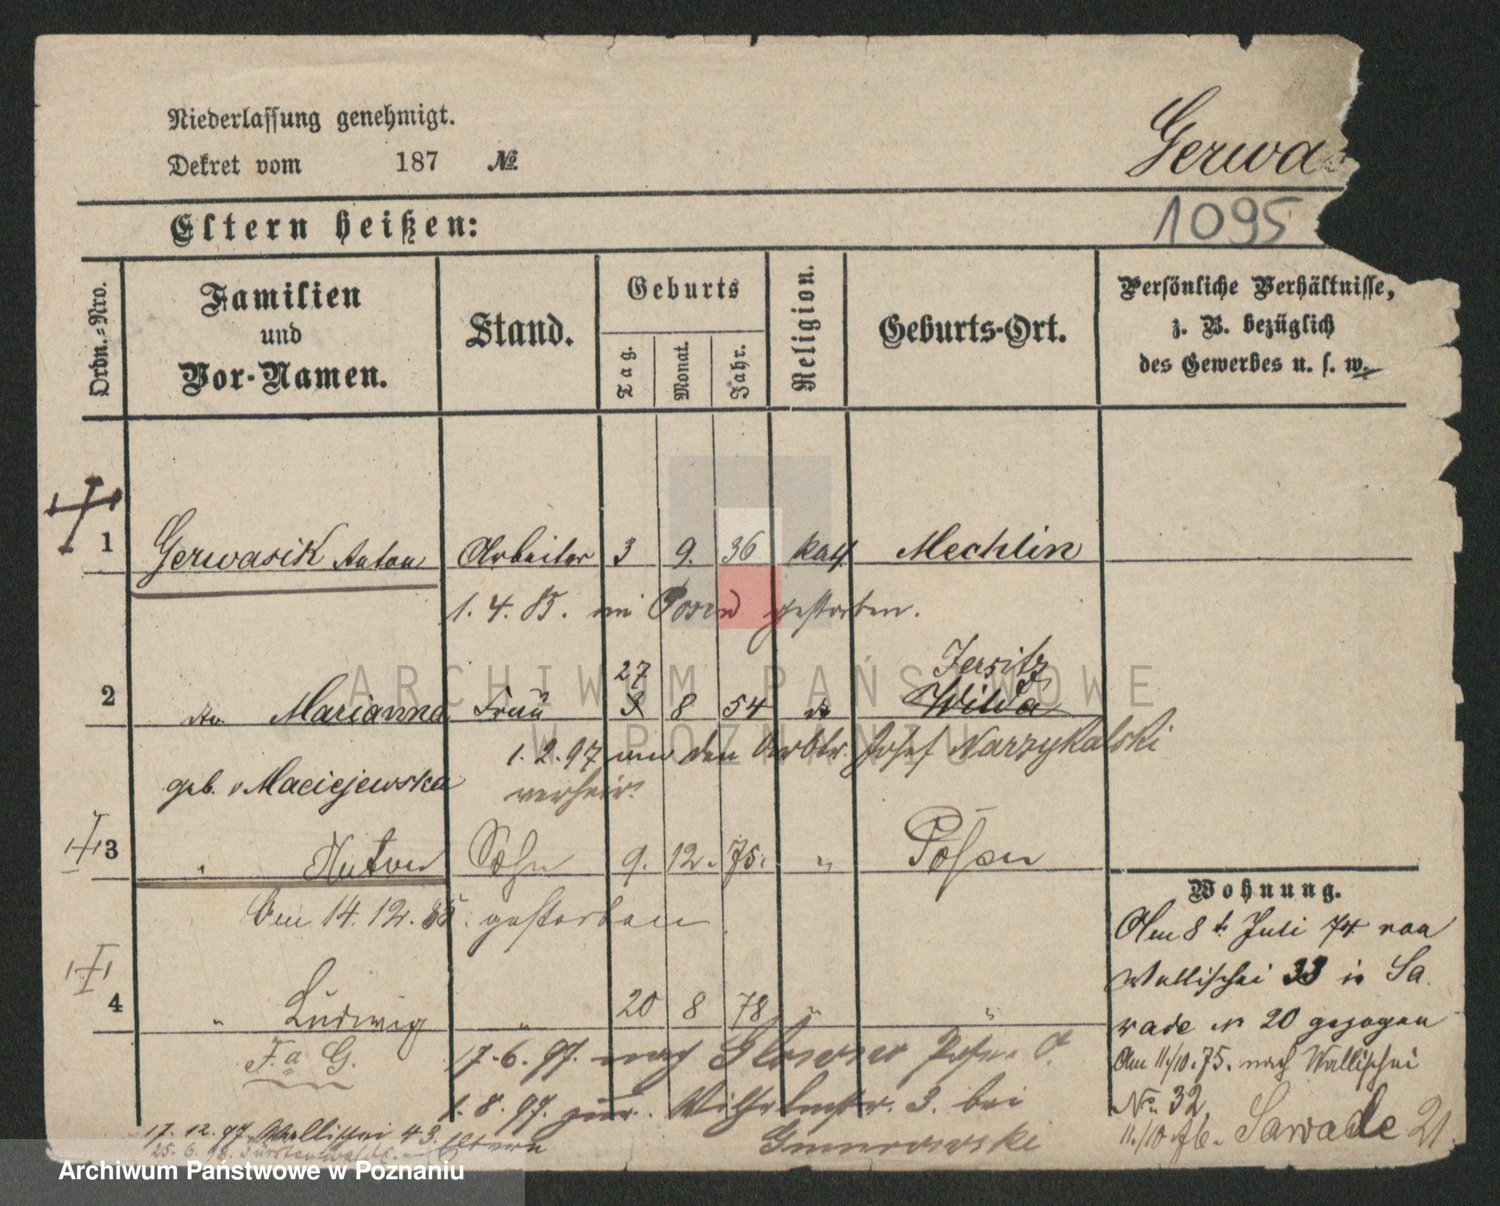 Niederlassung genehmigt.
Dekret vom 187 №
Gerwa
1095
Eltern heißen:
Ordn.-Nro.
Familien
und
Vor-Namen.
Stand.
Geburts
Tag.
Monat.
Jahr.
Religion.
Geburts-Ort.
Persönliche Verhältnisse,
z. B. bezüglich
des Gewerbes u. s. w.
1 Gerwasik Anton Arbeiter 3 9. 36 kath Mechlin
1. 4. 85. in Posen gestorben.
Jersitz
27
2 Marianna Frau 3 8 54 do Wilda
1. 2. 97 mit den Arbtr. Josef Narzykalski
geb. Maciejewska verheir.
3 " Anton Sohn 9. 12. 75. " Posen
Am 14. 12. 85. gestorben
4 " Ludwig " 20 8 78 " "
F. a G.
17. 6. 97. nach Glowno Posen O.
1. 8. 97. zur. Wilhelmstr. 3. bei
Gmurowski
17. 12. 97 Wallischei 43. Eltern
25. 6. 98.
Wohnung.
Am 8t Juli 74 von
Wallischei 33 in Sa
wade N 20 gezogen
Am 11/10. 75. nach Wallischei
No. 32.
11/10 76. Sawade 21
ARCHIWUM PAŃSTWOWE
W POZNANIU
Archiwum Państwowe w Poznaniu